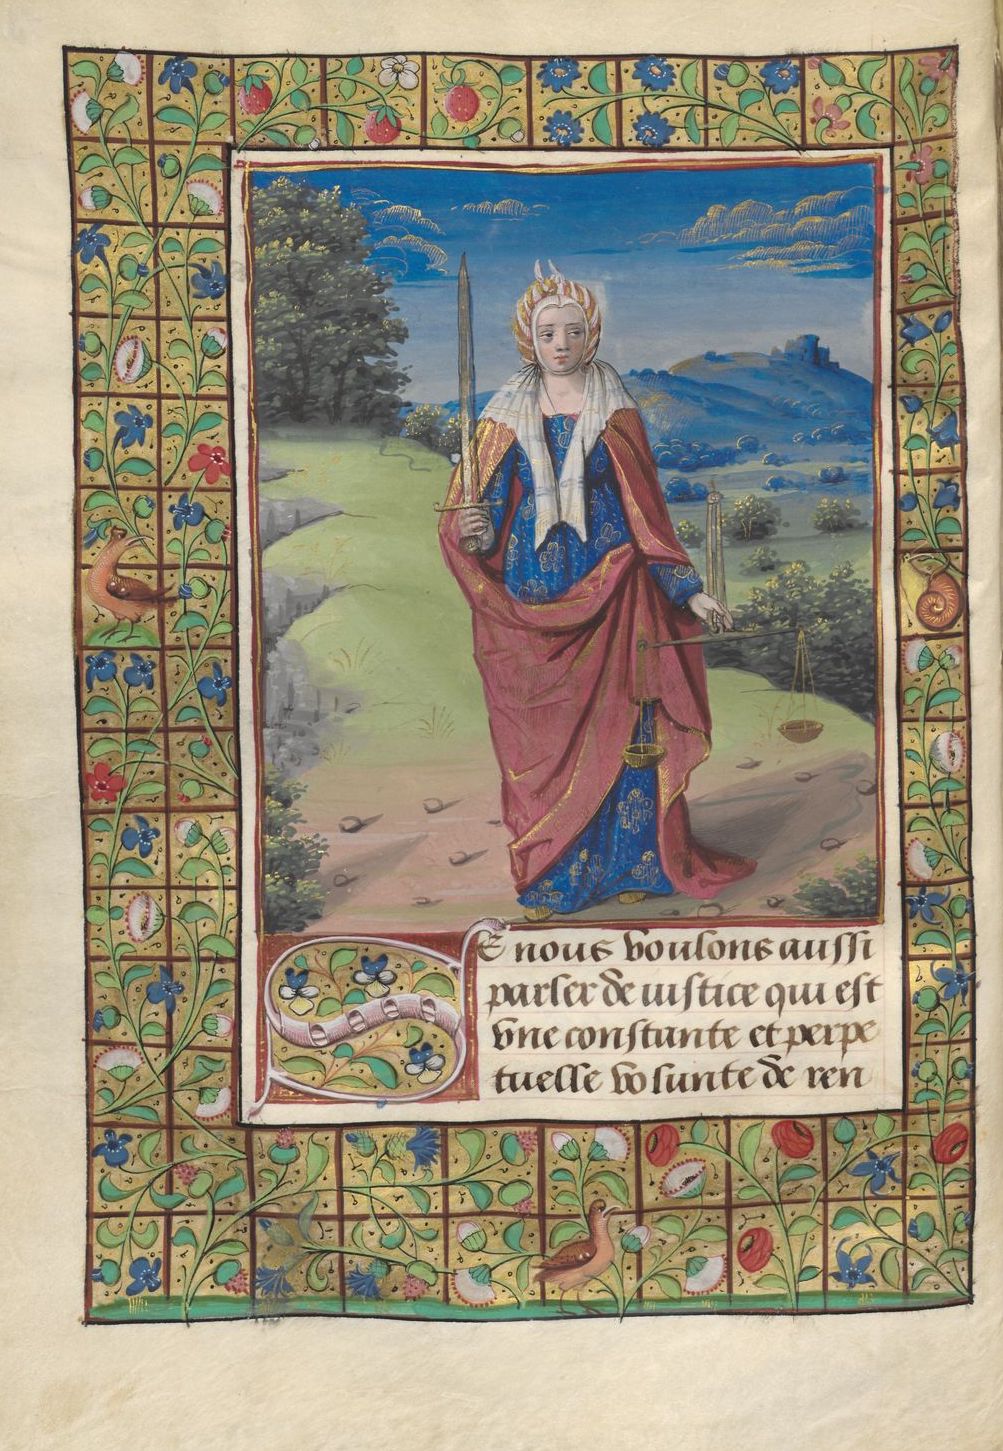 Se nous voulons aussi
parler de iustice qui est
vne constante et perpe
tuelle volunte de ren